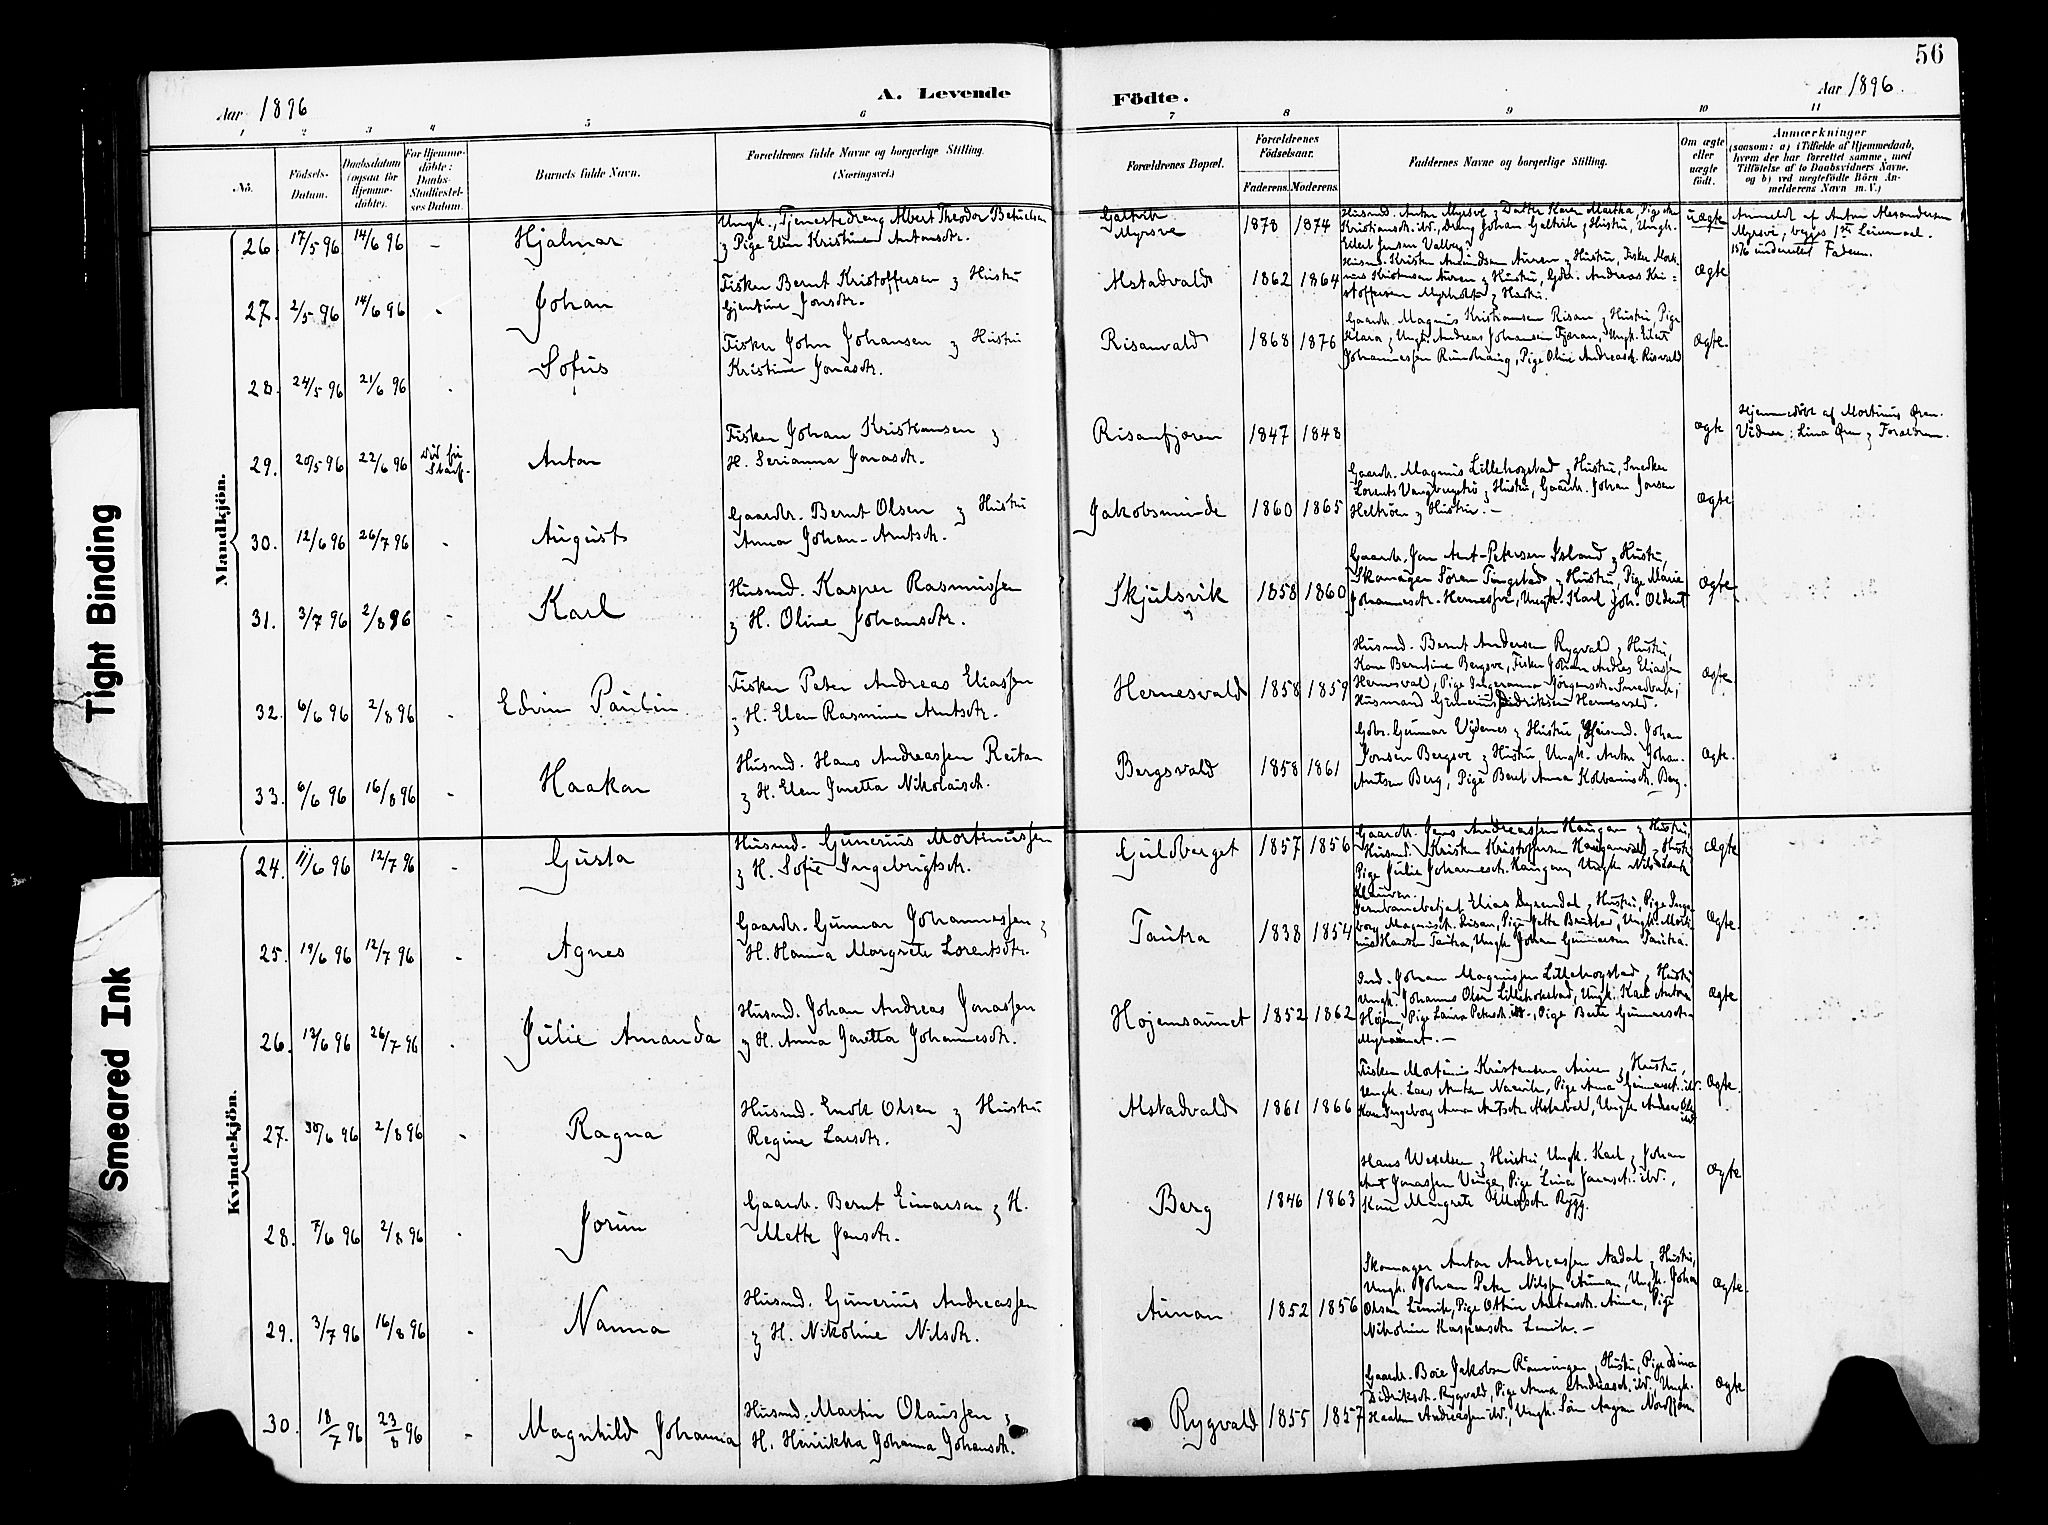 56
Aar 1896
A. Levende
Födte.
Aar 1896.
1 2 3 4 5 6 7 8 9 10 11
No.
Födsels-
Datum.
Daabsdatum
(ogsaa for
Hjemme-
döbte).
For Hjemme-
döbte:
Daabs-
Stadfæstel-
ses Datum.
Barnets fulde Navn.
Forældrenes fulde Navne og borgerlige Stilling.
(Næringsvei.)
Forældrenes Bopæl.
Forældrenes
Födselsaar.
Faderens. Moderens.
Faddernes Navne og borgerlige Stilling.
Om ægte
eller
uægte
födt.
Anmærkninger
(saasom: a) i Tilfælde af Hjemmedaab,
hvem der har forrettet samme, med
Tilföielse af to Daabsvidners Navne,
og b) ved uægtefödte Börn An-
melderens Navn m. V.)
Mandkjön.
26. 17/5 96 14/6 96 - Hjalmar
Ungk., Tjenestedreng Albert Theodor Betuelsen
& Pige Elin Kristine Antonsdtr.
Galtvik
Myrsve
1878 1874
Husmd. Anton Myrsve & Datter Karen Martha, Pige
Kristiansdtr. ibd., Dreng Johan Galtvik & Hustru, Ungk.
Edert Jensen Valberg.
uægte
Anmeldt af Anton Alexandersen
Myrsve, begges 1ste Leiermaal.
27. 2/5 96 14/6 96 - Johan
Fisker Bernt Kristoffersen & Hustru
Gjertine Jonsdtr.
Alstadvald 1862 1864
Ægte
28. 24/5 96 21/6 96 - Sofus
Fisker John Johansen & Hustru
Kristine Jonasdtr.
Risanvald 1868 1876
Gaardr. Magnus Kristiansen Risan & Hustru, Pige
Klara & Ungk. Andreas Johansen Fjøran, Ungk. Edert
Johannessen Rundhaug, Pige Oline Andreasdtr. Risvald
ægte.
29. 20/5 96 22/6 96
Anton
Fisker Johan Kristiansen &
H. Serianna Jonasdtr.
Risanfjæren 1847 1848
ægte
Hjemmedøbt af Mortinus Øren.
Vidner: Lina Øren & Forældrene.
30. 12/6 96 26/7 96 - August
Gaardbr. Bernt Olsen & Hustru
Anna Johan-Arntsdtr.
Jakobsminde 1860 1865
Gaardr. Magnus Lillehogstad & Hustru, Snedker
Lorents Vangbergstrø & Hustru, Gaardr. Johan Jonsen
Heltrøen & Hustru. -
Ægte
31. 3/7 96 2/8 96 - Karl
Husmd. Kasper Rasmussen
& H. Oline Johansdtr.
Skjulsvik 1858 1860
Gaardr. Jon Arnt-Petersen Island & Hustru,
Skomager Søren Tingstad & Hustru, Pige Marie
Johannesdtr. Hernesvie, Ungk. Karl Joh. Oldent
Ægte
32. 6/6 96 2/8 96 - Edvin Paulin
Fisker Peter Andreas Eliassen
& H. Elen Rasmine Arntsdtr.
Hernesvald 1858 1859
Husmd. Bernt Andersen Rygvald & Hustru,
Kone Berntine Bergsve, Fisker Johan Andreas Eliassen
Hernesvald, Pige Ingeranna Jørgensdtr. Smedvald,
Husmand Gunerius Didriksen Hernesvald.
Ægte.
33. 6/6 96 16/8 96 - Haakon
Husmd. Hans Andreassen Reitan
& H. Elen Jonetta Nikolaisdtr.
Bergsvald 1858 1861
Gdbr. Gunnar Vødenes & Hustru, Husmd. Johan
Jonsen Bergsve & Hustru, Ungk. Anton Johan-
Arntsen Berg, Pige Beret Anna Kolbanusdtr. Berg.
Ægte.
Kvindekjön.
24. 11/6 96 12/7 96 - Gusta
Husmd. Gunerius Mortinussen
& H. Sofie Ingebrigtsdtr.
Guldberget 1857 1856
Gaardr. Jens Andreassen Haugan & Hustru,
Husmd. Kristen Kristoffersen Hauganvald & Hustru
Pige Julie Johannesdtr. Haugan, Ungk. Nils
Ægte
25. 19/6 96 12/7 96 - Agnes
Gaardr. Gunnar Johannessen &
H. Hanna Margrete Lorentsdtr.
Tautra 1838 1854
Jernbanebetjet Elias Dyrendal & Hustru, Pige Inge-
borg Magnusdt. Risan, Pige Jette Brustad, Ungk. Morti-
nus Hansen Tautra, Ungk. Johan Gunnarsen Tautra.
Ægte.
26. 13/6 96 26/7 96 - Julie Amanda
Husmd. Johan Andreas Jonassen
& H. Anna Jonetta Johannesdtr.
Højemsaunet 1852 1862
Ind. Johan Magnussen Lillehogstad & Hustru
Ungk. Johannes Olsen Lillehokstad, Ungk. Karl Antons
Højem, Pige Laura Petersdt. ibd., Pige Berte Gunnersdtr.
Myraunet. -
Ægte
27. 30/6 96 2/8 96 - Ragna
Husmd. Enok Olsen & Hustru
Regine Larsdtr.
Alstadvald 1861 1866
Fisker Mortinus Kristensen Auren & Hustru,
Ungk. Lars Antson Naavik, Pige Anna Gunnarsdt. ibd.
Kone Ingeborg Anna Arntsdtr. Alstadvald, Ungk. Anders Ols.
ibd
Ægte.
28. 7/6 96 2/8 96 - Jorun
Gaardr. Bernt Einarsen & H.
Mette Jonsdtr.
Berg 1846 1863
Hans Wexelsen & Hustru, Ungk. Karl & Johan
Arnt Jonassen Vinge, Pige Lina Jonasdt. ibd.,
Kone Margrete Olausdtr. Rygg.
Ægte
29. 3/7 96 16/8 96 - Nanna
Husmd. Gunerius Andreassen
& H. Nikoline Nilsdtr.
Aunan 1852 1856
Skomager Anton Andreassen Aadal & Hustru,
Ungk. Johan Peter Nilssen Aunan, Ungk. Johan
Olsen Lenvik, Pige Ottine Antonsdtr. Aunan, Pige
Nikoline Kaspersdtr. Lenvik. -
Ægte
30. 18/7 96 23/8 96 - Magnhild Johanna
Husmd. Martin Olaussen &
H. Henrikka Johanna Johansdtr.
Rygvald 1855 1857
Gaardr. Boie Jakobsen Rønningen & Hustru, Pige Dina
Didriksdt. Rygvald, Pige Anna Andreasdt. ibd., Ungk.
Haakon Andreassen ibd., Ungk. Søren Nordfjæren
Ægte
Tight Binding
Smeared Ink